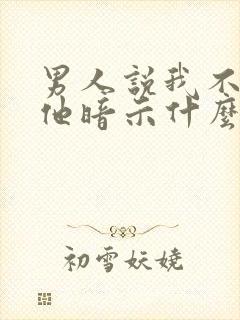 男人説我不
他暗示什麼
初雪妖嬈